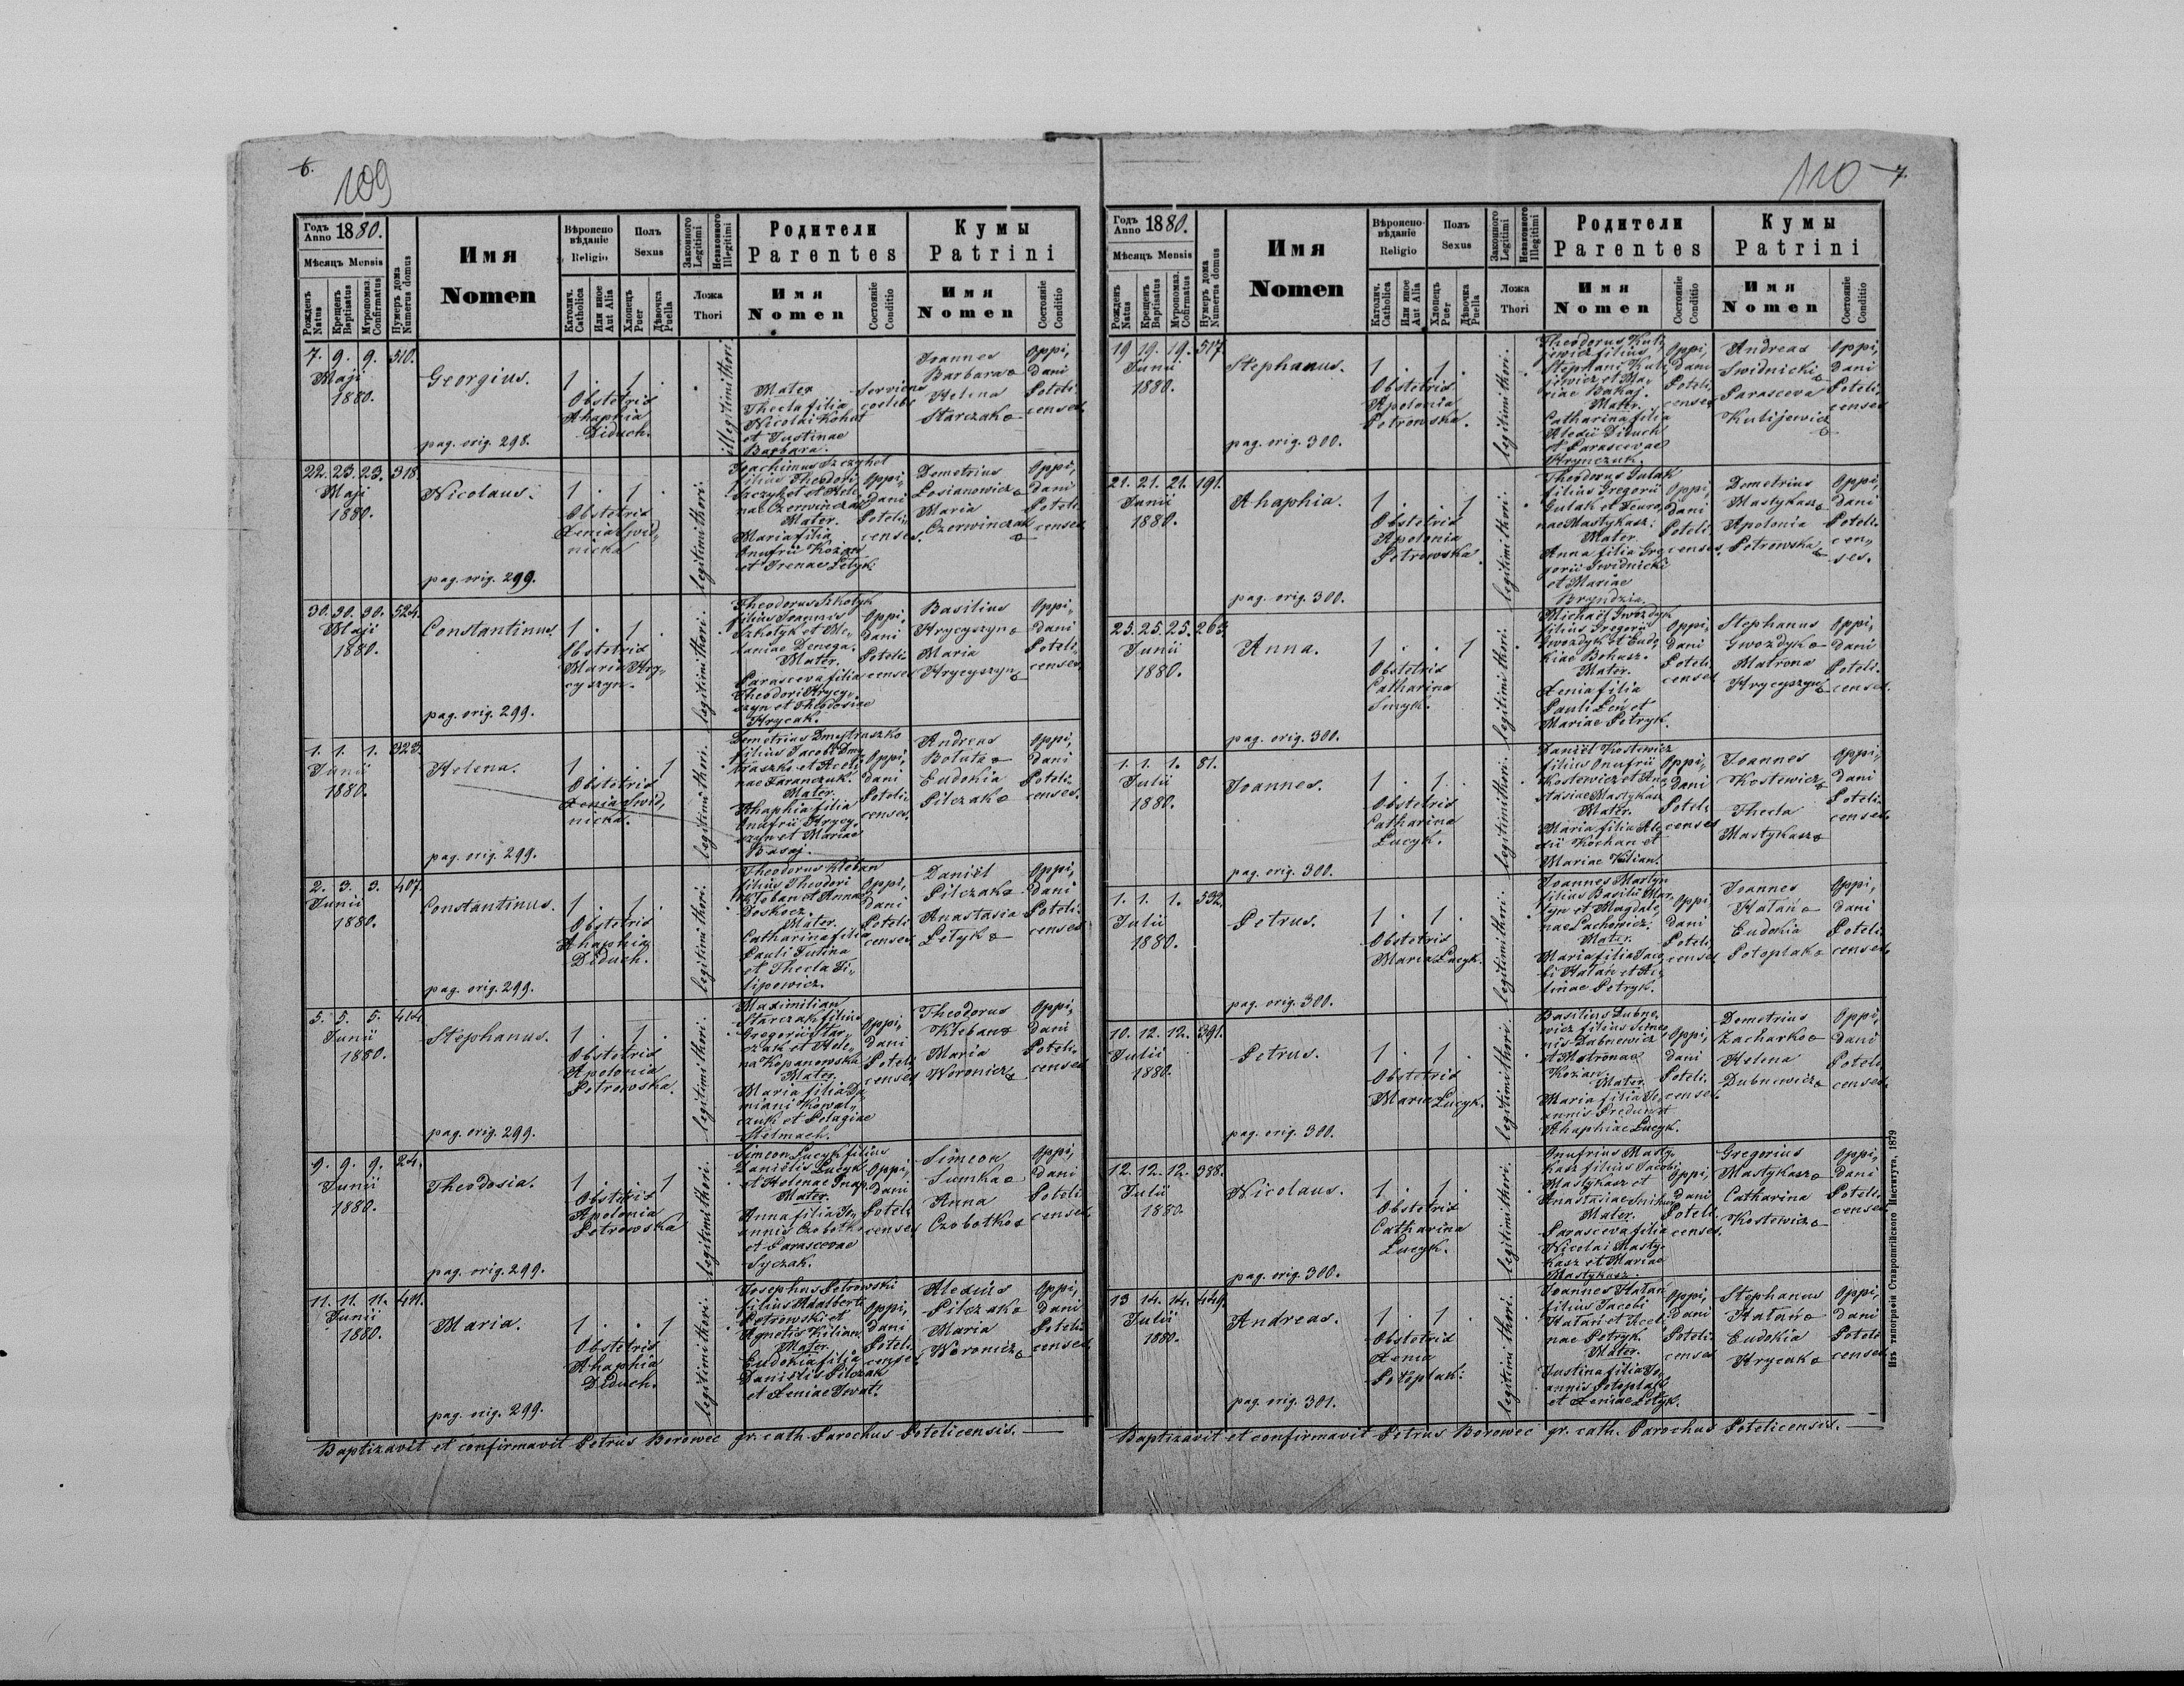 6.
109
Годъ Anno 1880.
Мѣсяцъ Mensis
Рожденъ Natus
Крещенъ Baptisatus
Мѵропомаз. Confirmatus
Нумеръ дома Numerus domus
Имя
Nomen
Вѣроисповѣданіе
Religio
Католич. Catholica
Или иное Aut Alia
Полъ
Sexus
Хлопецъ Puer
Дѣвочка Puella
Законного Legitimi
Незаконного Illegitimi
Ложа
Thori
Родители
Parentes
Имя
Nomen
Состояніе Conditio
Кумы
Patrini
Имя
Nomen
Состояніе Conditio
7. 9. 9. 510.
Maji
1880.
Georgius.
pag. orig. 298.
1 . 1 .
Obstetrix
Ahaphia
Diduch.
illegitimi thori
Mater
Thecla filia
Nicolai Kohut
et Justinae
Barbara.
Joannes
Barbara
Helena
Starczak
Oppi,
dani
Poteli
censes
22. 23. 23. 318.
Maji
1880.
Nicolaus.
pag. orig. 299.
1 . 1 .
Obstetrix
Xenia Swid,
nicka
legitimi thori.
Joachimus Szczyhel
filius Theodori
Szczyhel et Hele,
nae Czerwinczak
Mater.
Maria filia
Onufrii Kozan
et Irenae Letyk.
Oppi,
dani
Poteli,
censes.
Demetrius
Losianowicz
Maria
Czerwinczak
Oppi,
dani
Poteli
censes
30. 30. 30. 524.
Maji
1880.
Constantinus
pag. orig. 299.
1 . 1 .
Obstetrix
Maria Hry,
cyszyn.
legitimi thori.
Theodorus Szkotyk
filius Joannis
Szkotyk et Me,
laniae Denega.
Mater.
Parasceva filia
Theodori Hrycy,
szyn et Theodosiae
Hrycak.
Oppi,
dani
Poteli
censes
Basilius
Hrycyszyn
Maria
Hrycyszyn
Oppi,
dani
Poteli,
censes
1. 1. 1. 323.
Junii
1880.
Helena.
pag. orig. 299.
1 . . 1
Obstetrix
Xenia Swid,
nicka.
legitimi thori.
Demetrius Dmytraszko
filius Jacobi Dmy,
traszko et Aceli,
nae Taranczuk.
Mater.
Ahaphia filia
Onufrii Hrycy,
szyn et Mariae
Basaj.
Oppi,
dani
Poteli,
censes.
Andreas
Boluta
Eudokia
Pilczak
Oppi,
dani
Poteli.
censes.
2. 3. 3. 407.
Junii
1880.
Constantinus.
pag. orig. 299.
1 . 1 .
Obstetrix
Ahaphia
Diduch.
legitimi thori.
Theodorus Kleban
filius Theodori
Kleban et Anna
Doskocz.
Mater.
Catharina filia
Pauli Tutina
et Thecla Fi,
lipowicz.
Oppi,
dani
Poteli
censes
Daniël
Pilczak
Anastasia
Letyk
Oppi,
dani
Poteli.
censes
5. 5. 5. 414.
Junii
1880.
Stephanus.
pag. orig. 299.
1 . 1 .
Obstetrix
Apolonia
Petrowska.
legitimi thori.
Maximilian
Starczak filius
Gregorii Star,
czak et Hele,
na Kopanowska
Mater.
Maria filia Da,
miani Kowal,
czuk et Pelagiae
Stelmach.
Oppi,
dani
Poteli
censes
Theodorus
Kleban
Maria
Woronicz
Oppi,
dani
Poteli.
censes
9. 9. 9. 24.
Junii
1880.
Theodosia.
pag. orig. 299.
1 . . 1
Obstetrix
Apolonia
Petrowska
legitimi thori.
Simeon Lucyk filius
Danielis Lucyk
et Helenae Snap.
Mater.
Anna filia Jo,
annis Czobotko
et Parascevae
Syczak.
Oppi,
dani
Poteli
censes
Simeon
Sumka
Anna
Czobotko
Oppi,
dani
Poteli
censes.
11. 11. 11. 411.
Junii
1880.
Maria.
pag. orig. 299.
1 . . 1
Obstetrix
Ahaphia
Diduch.
legitimi thori.
Josephus Petrowski
filius Adalberti
Petrowski et
Agnetis Kilian.
Mater.
Eudokia filia
Danielis Pilczak
et Xeniae Iwat.
Oppi,
dani
Poteli.
censes
Alexius
Pilczak
Maria
Woronicz
Oppi,
dani
Poteli
censes.
Baptizavit et confirmavit Petrus Borowec gr. cath. Parochus Potelicensis.
110
7.
Годъ Anno 1880.
Мѣсяцъ Mensis
Рожденъ Natus
Крещенъ Baptisatus
Мѵропомаз. Cofirmatus
Нумеръ дома Numerus domus
Имя
Nomen
Вѣроисповѣданіе
Religio
Католич. Catholica
Или иное Aut Alia
Полъ
Sexus
Хлопецъ Puer
Дѣвочка Puella
Законного Legitimi
Незаконного Illegitimi
Ложа
Thori
Родители
Parentes
Имя
Nomen
Состояніе Conditio
Кумы
Patrini
Имя
Nomen
Состояніе Conditio
19 19. 19. 517.
Junii
1880.
Stephanus.
pag. orig. 300.
1 . 1 .
Obstetrix
Apolonia
Petrowska.
legitimi thori.
Theodorus Kuli,
jewicz filius
Stephani Kuli
jewicz et Ma,
riae Bakaj.
Mater.
Catharina filia
Alexii Diduch
et Parascevae
Hrynczuk.
Oppi,
dani
Poteli,
censes
Andreas
Swidnicki
Parasceva
Kulijewicz
Oppi,
dani
Poteli.
censes
21. 21. 21. 191.
Junii
1880.
Ahaphia.
pag. orig. 300.
1 . . 1
Obstetrix
Apolonia
Petrowska.
legitimi thori.
Theodorus Gulak
filius Gregorii
Gulak et Feuro,
nae Mastykasz.
Mater.
Anna filia Gre
gorii Swidnicki
et Mariae
Bryndzia.
Oppi,
dani
Poteli
censes,
Demetrius
Mastykasz
Apolonia
Petrowska
Oppi,
dani
Poteli.
cen,
ses.
25. 25. 25. 263.
Junii
1880.
Anna.
pag. orig. 300.
1 . . 1
Obstetrix
Catharina
Smyk.
legitimi thori.
Michaël Gwozdyk
filius Gregorii
Gwozdyk et Eudo,
kiae Bohusz.
Mater.
Xenia filia
Pauli Len et
Mariae Petryk.
Oppi,
dani
Poteli
censes
Stephanus
Gwozdyk
Matrona
Hrycyszyn
Oppi,
dani
Poteli.
censes.
1. 1. 1. 81.
Julii
1880.
Joannes.
pag. orig. 300.
1 . 1 .
Obstetrix
Catharina
Lucyk.
legitimi thori.
Daniël Kostewicz
filius Onufrii
Kostewicz et Ana
stasiae Mastykasz
Mater.
Maria filia Ale
xii Kochan et
Mariae Kilian.
Oppi,
dani
Poteli
censes
Joannes
Kostewicz
Thecla
Mastykasz
Oppi,
dani
Poteli.
censes.
1. 1. 1. 532.
Julii
1880.
Petrus.
pag. orig. 300.
1 . 1 .
Obstetrix
Maria Lucyk.
legitimi thori.
Joannes Martyn
filius Basilii Mar,
tyn et Magdale,
nae Lachowicz.
Mater.
Maria filia Jaco,
bi Hałan et Ac,
linae Petryk.
Oppi,
dani
Poteli.
censes
Joannes
Hałan
Eudokia
Potoplak
Oppi,
dani
Poteli.
censes.
10. 12. 12. 391.
Julii
1880.
Petrus.
pag. orig. 300.
1 . 1 .
Obstetrix
Maria Lucyk.
legitimi thori.
Basilius Dubne,
wicz filius Simeo
nis Dubnewicz
et Matronae
Kozian.
Mater.
Maria filia Jo,
annis Predun et
Ahaphiae Lucyk.
Oppi,
dani
Poteli.
censes.
Demetrius
Zacharko
Helena
Dubnewicz
Oppi,
dani
Poteli
censes.
12. 12. 12. 388.
Julii
1880.
Nicolaus.
pag. orig. 300.
1 . 1 .
Obstetrix
Catharina
Lucyk.
legitimi thori.
Onufrius Masty,
kasz filius Jacobi
Mastykasz et
Anastasiae
Mater.
Parasceva filia
Nicolai Masty,
kasz et Mariae
Mastykasz.
Oppi,
dani
Poteli.
censes.
Gregorius
Mastykasz
Catharina
Kostewicz
Oppi,
dani
Poteli.
censes
13 14. 14. 449.
Julii
1880.
Andreas.
pag. orig. 301.
1 . 1 .
Obstetrix
Xenia
Potoplak.
legitimi thori.
Joannes Hałan
filius Jacobi
Hałan et Acel,
nae Petryk.
Mater.
Justina filia Jo,
annis Potoplak
et Xeniae Letyk.
Oppi,
dani
Poteli.
censes
Stephanus
Hałan
Eudokia
Hrycak
Oppi,
dani
Poteli
censes.
Baptizavit et confirmavit Petrus Borowec gr. cath. Parochus Potelicensis.
Изъ типографіи Ставропигійского Института, 1879